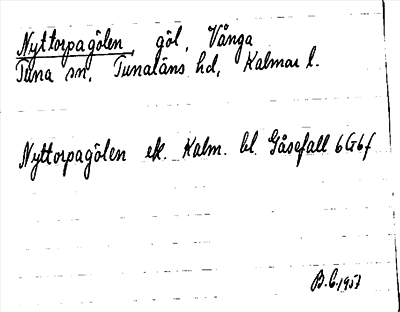 Nyttorpagölen, göl, Vånga
Tuna sn, Tunaläns hd, Kalmar l.
Nyttorpagölen ek. Kalm. bl. Gåsefall 6G6f
B.C. 1957